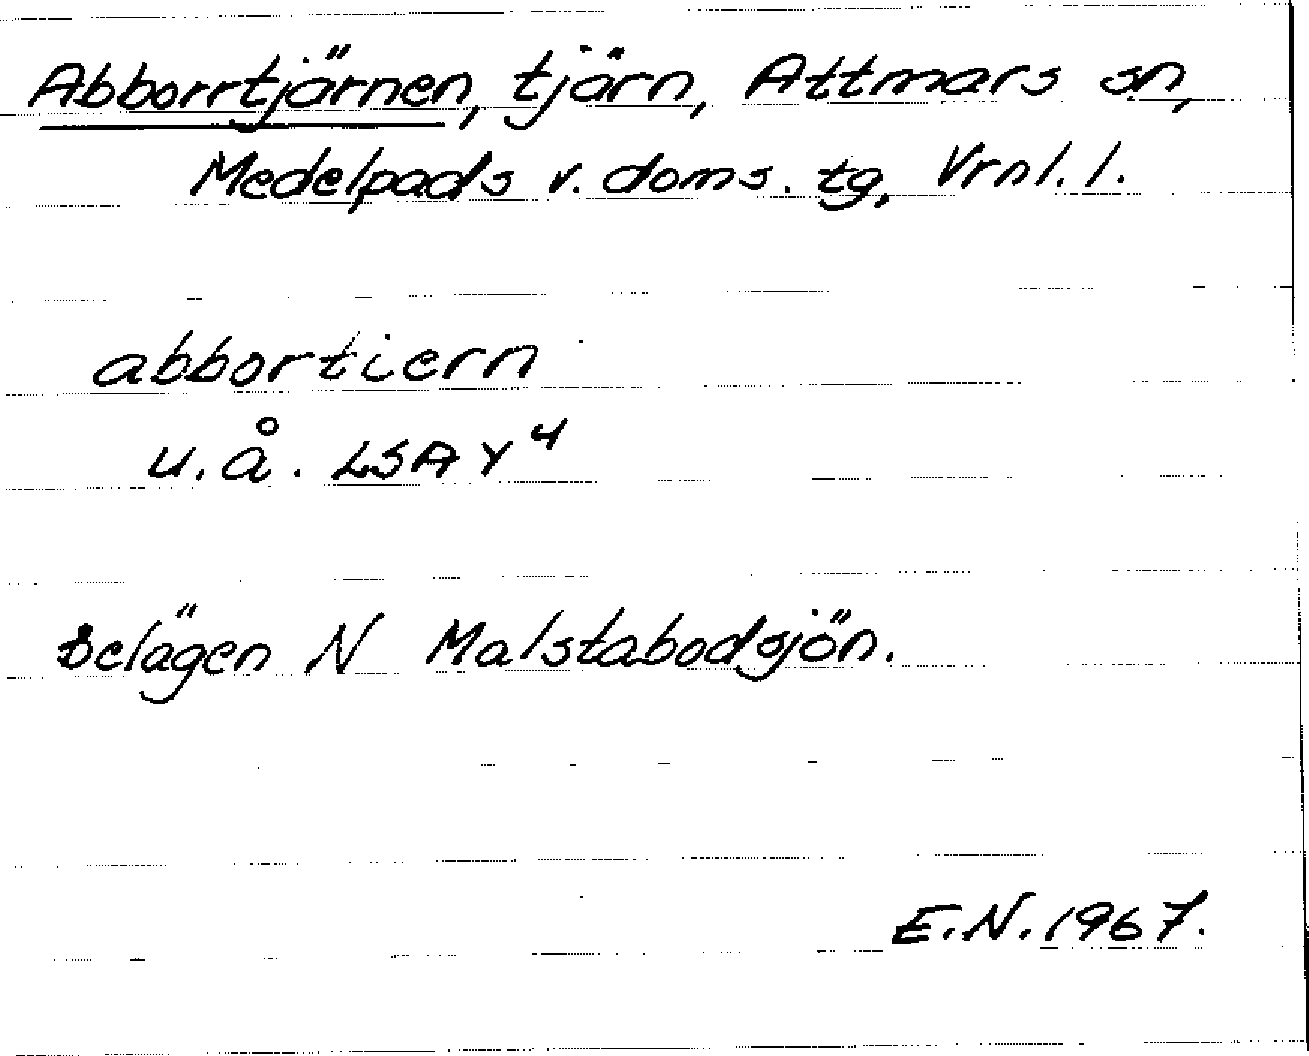 Abborrtjärnen, tjärn, Attmars sn,
Medelpads v. doms. tg, Vrnl. l.
abbortiern
u. å. LSA Y⁴
Belägen N Malstabodsjön.
E.N. 1967.